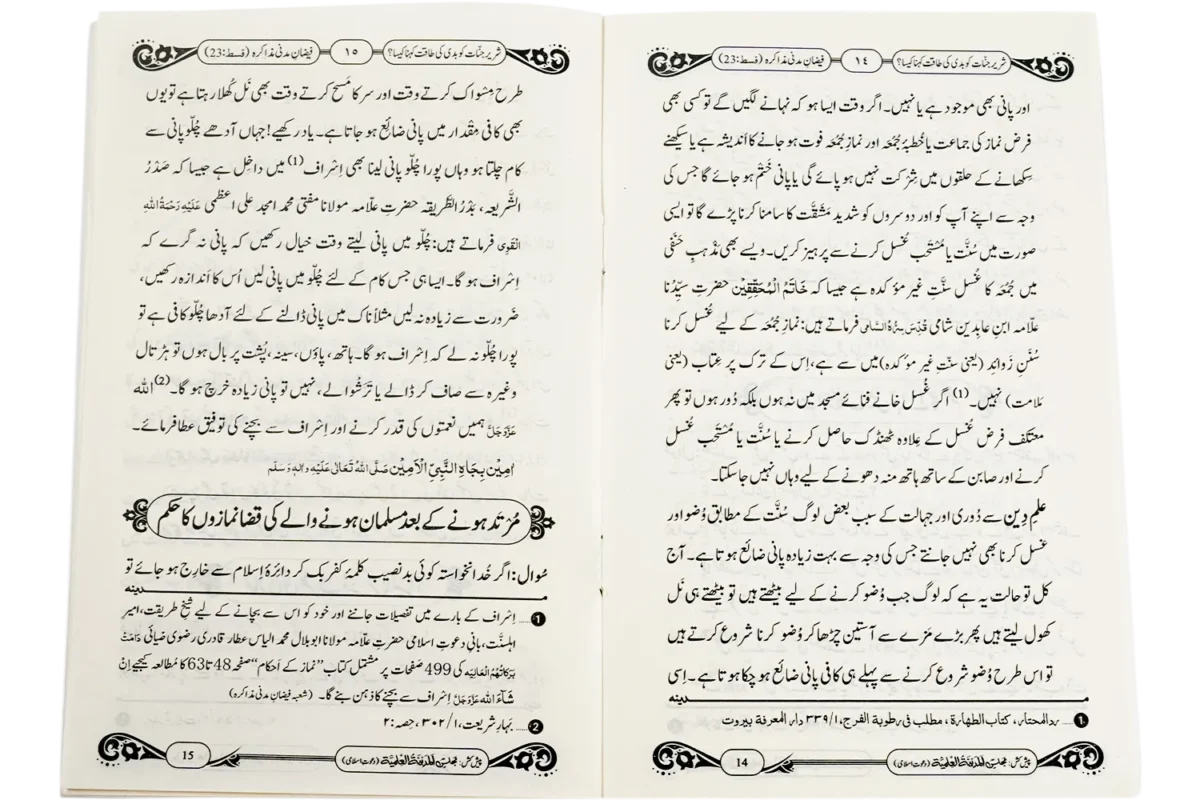 شریر جنّات کو بدی کی طاقت کہنا کیسا؟
١٤
فیضانِ مدنی مذاکرہ (قسط:23)
اور پانی بھی موجود ہے یا نہیں۔ اگر وقت ایسا ہو کہ نہانے لگیں گے تو کسی بھی
فرض نماز کی جماعت یا خُطبۂ جُمُعَہ اور نمازِ جُمُعَہ فوت ہو جانے کا اَندیشہ ہے یا سیکھنے
سِکھانے کے حلقوں میں شِرکت نہیں ہو پائے گی یا پانی خَتْم ہو جائے گا جس کی
وجہ سے اپنے آپ کو اور دوسروں کو شدید مَشَقَّت کا سامنا کرنا پڑے گا تو ایسی
صورت میں سُنَّت یا مُسْتَحَب غُسل کرنے سے پرہیز کریں۔ ویسے بھی مَذہبِ حَنَفی
میں جُمُعَہ کا غسل سنّتِ غیر مؤکدہ ہے جیسا کہ خَاتَمُ الْمُحَقِّقِیْن حضرتِ سیِّدُنا
علّامہ ابنِ عابدین شامی قُدِّسَ سِرُّہُ السَّامِی فرماتے ہیں: نمازِ جُمُعَہ کے لیے غُسل کرنا
سُنَنِ زَوائد (یعنی سنّتِ غیر مؤکدہ) میں سے ہے، اِس کے ترک پر عِتاب (یعنی
مَلامت) نہیں۔(1) اگر غُسل خانے فنائے مسجد میں نہ ہوں بلکہ دُور ہوں تو پھر
معتکف فرض غُسل کے عِلاوہ ٹھنڈک حاصل کرنے یا سُنَّت یا مُسْتَحَب غسل
کرنے اور صابن کے ساتھ ہاتھ منہ دھونے کے لیے وہاں نہیں جا سکتا۔
عِلمِ دِین سے دُوری اور جہالت کے سبب بعض لوگ سُنَّت کے مطابق وُضو اور
غسل کرنا بھی نہیں جانتے جس کی وجہ سے بہت زیادہ پانی ضائع ہوتا ہے۔ آج
کل تو حالت یہ ہے کہ لوگ جب وُضو کرنے کے لیے بیٹھتے ہیں تو بیٹھتے ہی نَل
کھول لیتے ہیں پھر بڑے مَزے سے آستین چڑھا کر وُضو کرنا شروع کرتے ہیں
تو اس طرح وُضو شروع کرنے سے پہلے ہی کافی پانی ضائع ہو چکا ہوتا ہے۔ اِسی
مدینہ
1 .... ردالمحتار، کتاب الطھارة، مطلب فی رطوبة الفرج، ١/٣٣٩ دار المعرفة بیروت
پیش کش: مجلس المدینۃ العلمیۃ (دعوتِ اسلامی)
14
شریر جنّات کو بدی کی طاقت کہنا کیسا؟
١٥
فیضانِ مدنی مذاکرہ (قسط:23)
طرح مِسْواک کرتے وقت اور سر کا مَسح کرتے وقت بھی نَل کُھلا رہتا ہے تو یوں
بھی کافی مِقْدار میں پانی ضائع ہو جاتا ہے۔ یاد رکھیے! جہاں آدھے چُلّو پانی سے
کام چلتا ہو وہاں پورا چُلّو پانی لینا بھی اِسْراف(1) میں داخِل ہے جیسا کہ صَدْرُ
الشَّریعہ، بَدْرُ الطَّریقہ حضرتِ علّامہ مولانا مفتی محمد امجد علی اعظمی عَلَیْہِ رَحْمَۃُ اللہِ
الْقَوِی فرماتے ہیں: چُلّو میں پانی لیتے وقت خیال رکھیں کہ پانی نہ گرے کہ
اِسْراف ہو گا۔ ایسا ہی جس کام کے لئے چُلّو میں پانی لیں اُس کا اَندازہ رکھیں،
ضَرورت سے زیادہ نہ لیں مثلاً ناک میں پانی ڈالنے کے لئے آدھا چُلّو کافی ہے تو
پورا چُلّو نہ لے کہ اِسْراف ہو گا۔ ہاتھ، پاؤں، سینہ، پُشت پر بال ہوں تو ہڑتال
وغیرہ سے صاف کر ڈالے یا تَرَشْوالے، نہیں تو پانی زیادہ خرچ ہو گا۔(2) اللہ
عَزَّوَجَلَّ ہمیں نعمتوں کی قدر کرنے اور اِسْراف سے بچنے کی توفیق عطا فرمائے۔
اٰمِیْن بِجَاہِ النَّبِیِّ الْاَمِیْن صَلَّی اللہُ تَعَالٰی عَلَیْہِ واٰلہٖ وَسَلَّم
مُرْتَد ہونے کے بعد مسلمان ہونے والے کی قضا نمازوں کا حکم
سُوال: اگر خُدانخواستہ کوئی بدنصیب کلمۂ کفر بک کر دائرۂ اِسلام سے خارِج ہو جائے تو
مدینہ
1 .... اِسْراف کے بارے میں تفصیلات جاننے اور خود کو اس سے بچانے کے لیے شیخِ طریقت، امیرِ
اہلسنَّت، بانیِ دعوتِ اسلامی حضرتِ علّامہ مولانا ابو بلال محمد الیاس عطار قادری رضوی ضیائی دَامَتْ
بَرَکَاتُہُمُ الْعَالِیَہ کی 499 صفحات پر مشتمل کتاب ”نماز کے اَحکام“ صفحہ 48 تا 63 کا مطالعہ کیجیے اِنْ
شَآءَ اللہ عَزَّوَجَلَّ اِسْراف سے بچنے کا ذہن بنے گا۔ (شعبہ فیضانِ مدنی مذاکرہ)
2 .... بہارِ شریعت، ١/٣٠٢، حصہ: ٢
پیش کش: مجلس المدینۃ العلمیۃ (دعوتِ اسلامی)
15